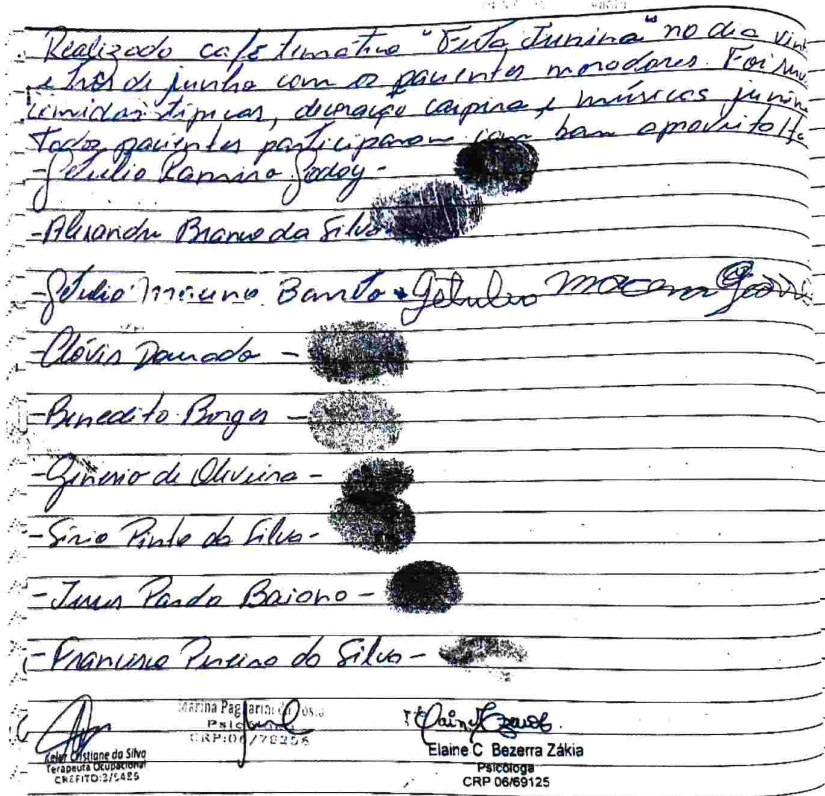 Realizado café temático "Festa Junina" no dia vin
e três de junho com os pacientes moradores. Foi
comidas típicas, decoração caipira e músicas junin
Todos pacientes participaram com bom aproveita
-Getulio Ramiro Godoy-
-Alexandre Branco da Silva
-Getulio Barreto - Getulio
-Clóvis Dourado -
-Benedito Borges -
-Genesio de Oliveira -
-Sirio Pinto da Silva-
-Pardo Baiano -
-Francisco Pereira da Silva-
Cristiane da Silva
Terapeuta Ocupacional
CREFITO:3/
Marina Pagliarini
CRP:06/
Elaine C Bezerra Zákia
Psicóloga
CRP 06/69125